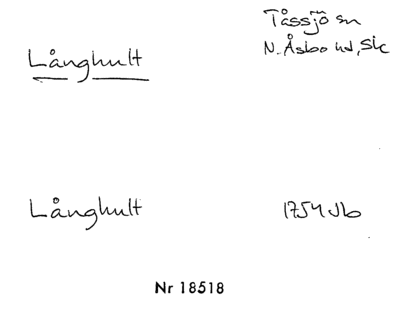 Tåssjö sn
Långhult
N. Åsbo hd, Sk
Långhult
1754 Jb
Nr 18518